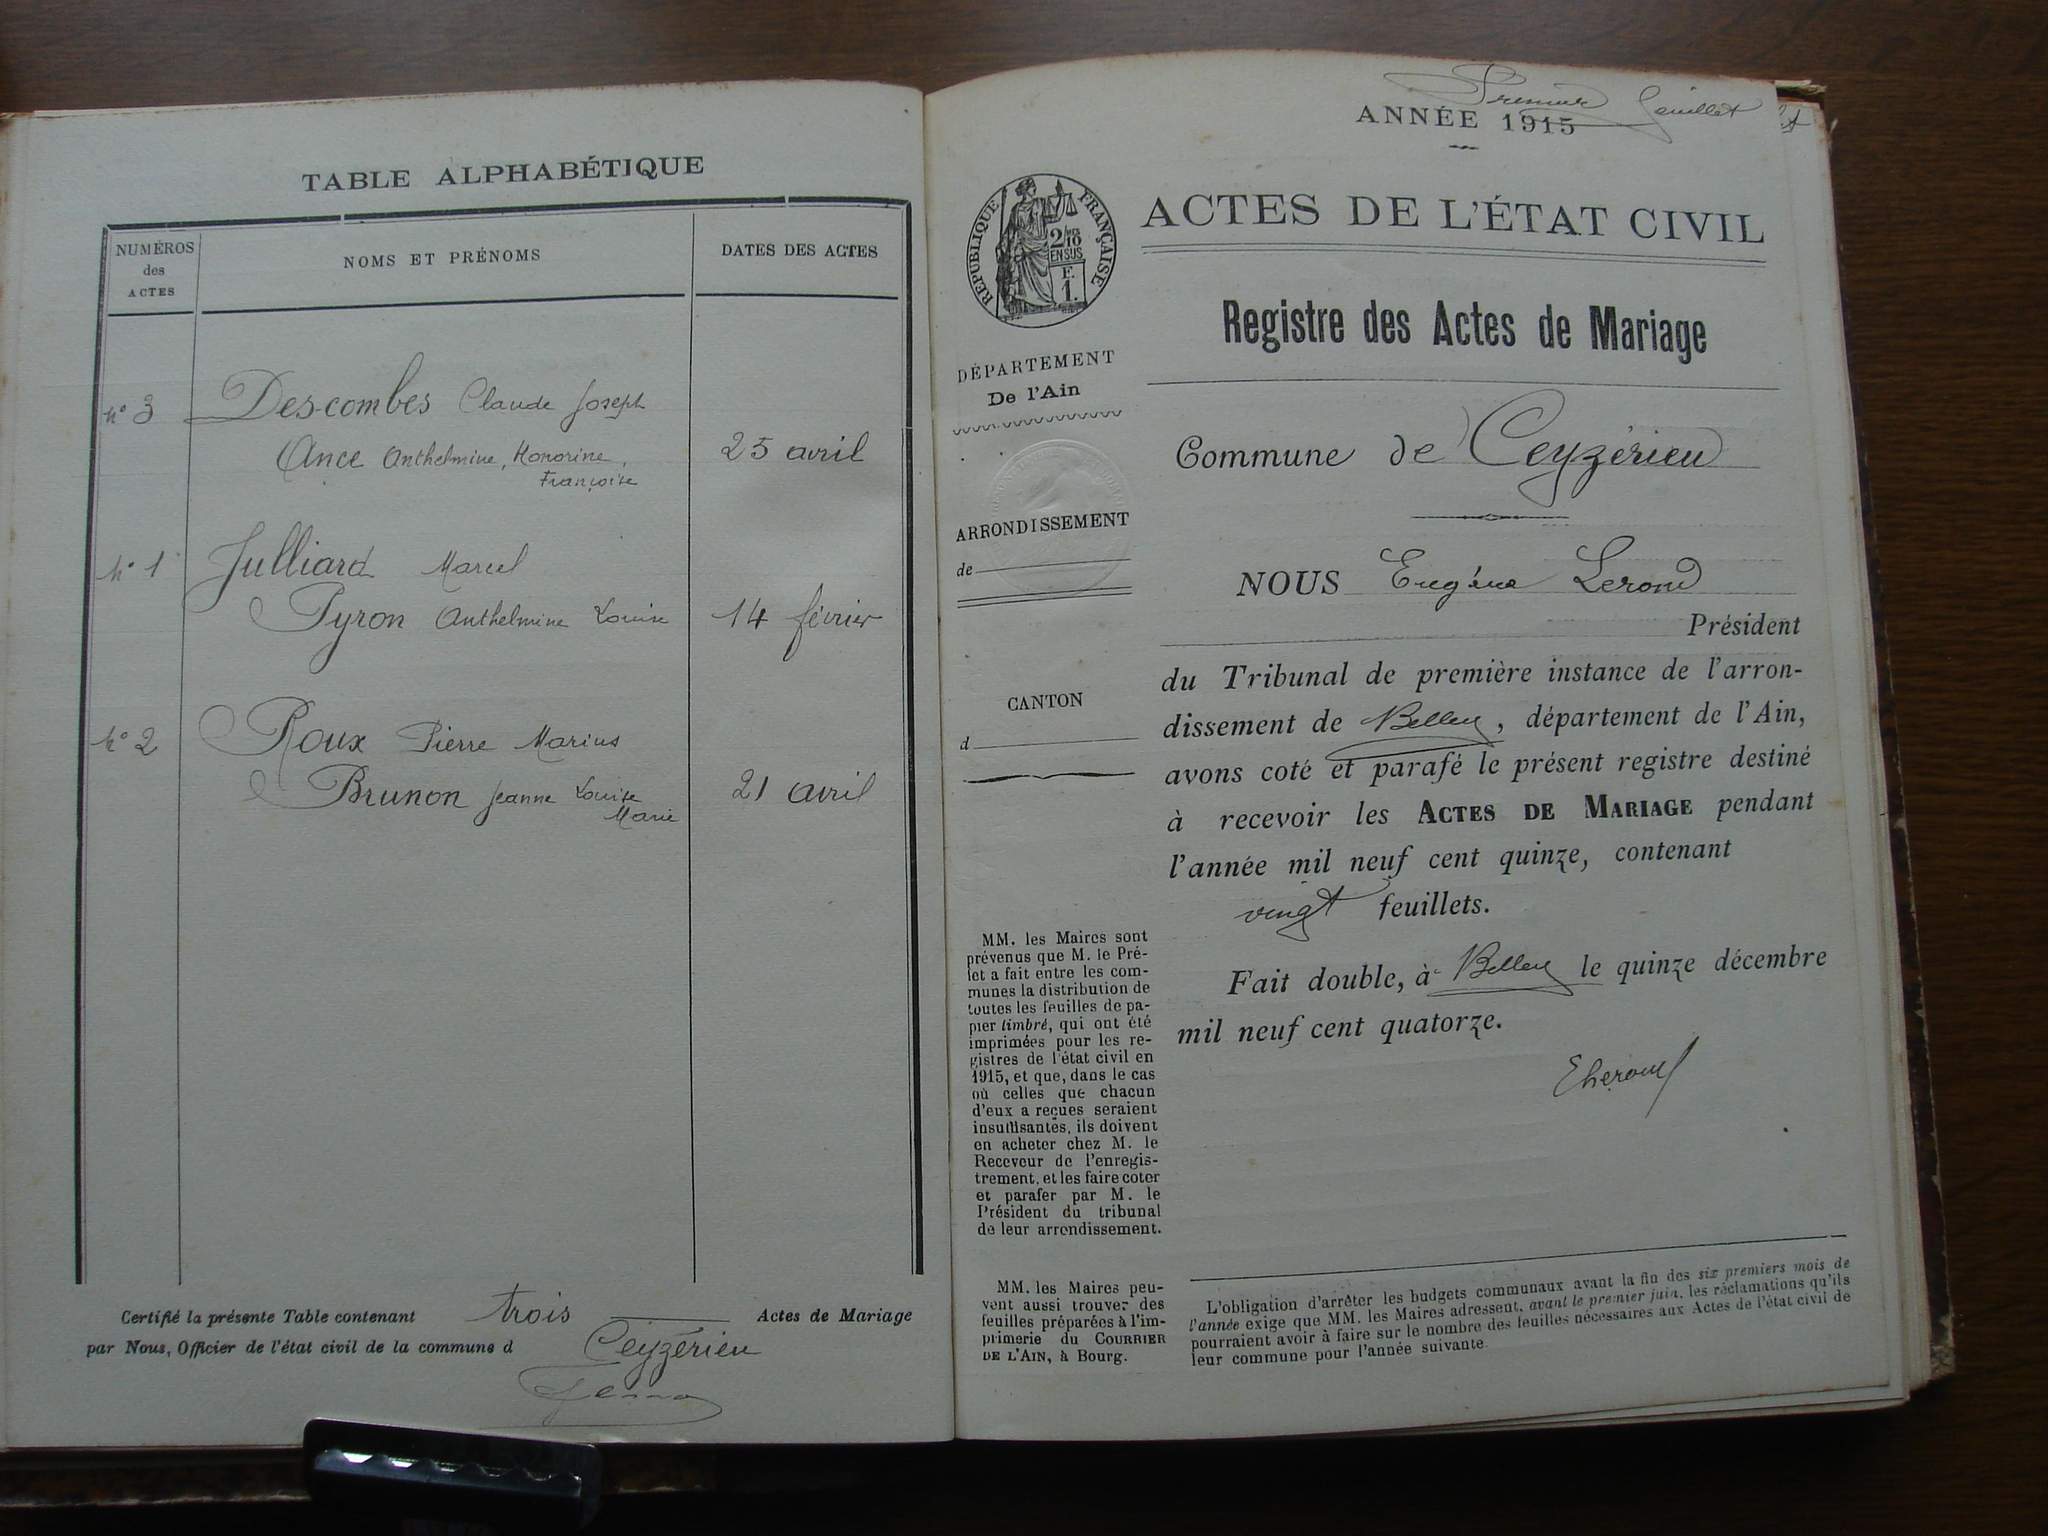 TABLE ALPHABÉTIQUE
NUMÉROS des ACTES
NOMS ET PRÉNOMS
DATES DES ACTES
n° 3 Descombes Claude Joseph
Ance Anthelmine, Honorine, 25 avril
Françoise
n° 1 Julliard Marcel
Pyron Anthelmine Louise 14 février
n° 2 Roux Pierre Marius
Brunon Jeanne Louise 21 avril
Marie
Certifié la présente Table contenant trois Actes de Mariage
par Nous, Officier de l'état civil de la commune d Ceyzérieu
Premier feuillet
ANNÉE 1915
RÉPUBLIQUE FRANÇAISE
2/10 EN SUS
F. 1.
ACTES DE L'ÉTAT CIVIL
Registre des Actes de Mariage
DÉPARTEMENT
De l'Ain
ARRONDISSEMENT
de
CANTON
d
Commune de Ceyzérieu
NOUS Eugène Lerond
Président
du Tribunal de première instance de l'arron-
dissement de Belley, département de l'Ain,
avons coté et parafé le présent registre destiné
à recevoir les ACTES DE MARIAGE pendant
l'année mil neuf cent quinze, contenant
vingt feuillets.
Fait double, à Belley le quinze décembre
mil neuf cent quatorze.
MM. les Maires sont
prévenus que M. le Pré-
fet a fait entre les com-
munes la distribution de
toutes les feuilles de pa-
pier timbré, qui ont été
imprimées pour les re-
gistres de l'état civil en
1915, et que, dans le cas
où celles que chacun
d'eux a reçues seraient
insuffisantes, ils doivent
en acheter chez M. le
Receveur de l'enregis-
trement, et les faire coter
et parafer par M. le
Président du tribunal
de leur arrondissement.
MM. les Maires peu-
vent aussi trouver des
feuilles préparées à l'im-
primerie du COURRIER
DE L'AIN, à Bourg.
L'obligation d'arrêter les budgets communaux avant la fin des six premiers mois de
l'année exige que MM. les Maires adressent, avant le premier juin, les réclamations qu'ils
pourraient avoir à faire sur le nombre des feuilles nécessaires aux Actes de l'état civil de
leur commune pour l'année suivante.